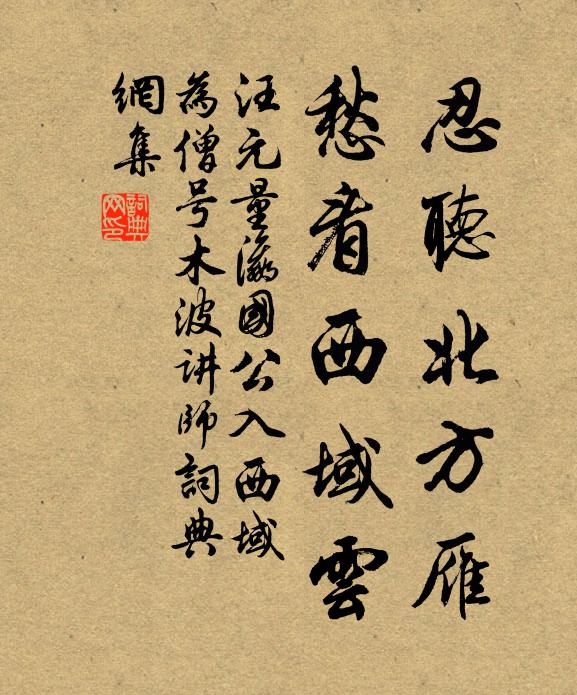 忍聽北方雁
愁看西域雲
汪元量瀛國公入西域
為僧号木波讲師詞典
網集
詞典网印